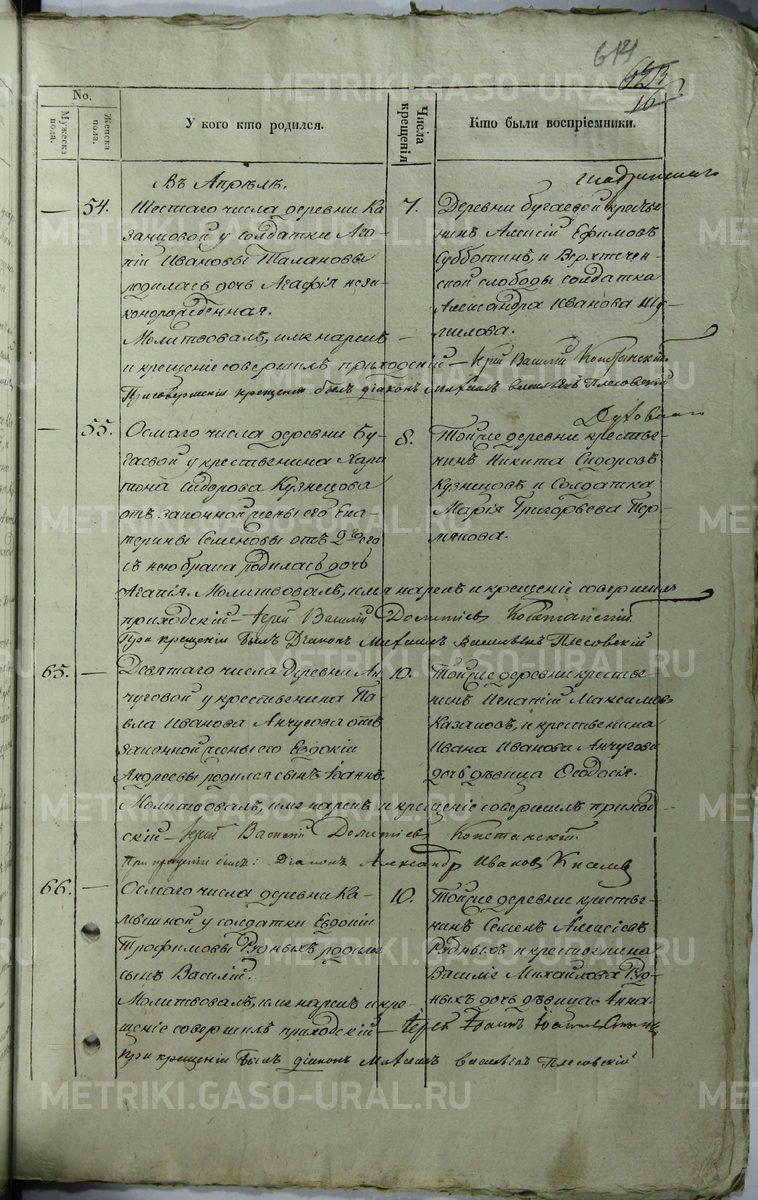 614
No.
Мужеска пола.
Женска пола.
У кого кто родился.
Числа крещенія
Кто были воспріемники.
Въ Апрѣлѣ.
54.
Шестаго числа деревни Ка-
занцовой у солдатки Ага-
піи Ивановы Талановы
родилась дочь Агафія неза-
коннорожденная.
Молитвовалъ, имя нарекъ
и крещеніе совершилъ приходскій Іерей Василій
При совершеніи крещенія былъ діаконъ Михаилъ Васильевъ Плесовскій
7.
Деревни Бугаевой крестья-
нинъ Алексій Ефимовъ
Субботинъ, и Верхтечен-
ской слободы солдатка
Александра Иванова
55.
Осмаго числа деревни Бу-
гаевой у крестьянина Хари-
тона Сидорова Кузнецова
отъ законной жены его Ека-
терины Семеновы отъ 2го его
съ нею брака родилась дочь
Агапія. Молитвовалъ, имя нарекъ и крещеніе совершилъ
приходскій Іерей Василій
При крещеніи былъ Діаконъ Михаилъ Васильевъ Плесовскій
8.
Тойже деревни крестья-
нинъ Никита Сидоровъ
Кузнецовъ и Солдатка
Марія Григорьева Пер-
мякова.
65.
Девятаго числа деревни Ан-
чуговой у крестьянина Па-
вла Иванова Анчугова отъ
законной жены его Евдокіи
Андреевы родился сынъ Іоаннъ.
Молитвовалъ, имя нарекъ и крещеніе совершилъ приход-
скій Іерей Василій
При крещеніи былъ: Діаконъ Александръ Ивановъ
10.
Тойже деревни крестья-
нинъ Игнатій Максимовъ
Казаковъ, и крестьянина
Ивана Иванова Анчугова
дочь дѣвица Ѳеодосія.
66.
Осмаго числа деревни Ка-
мышной у солдатки Евдокіи
Трофимовы Рудныхъ родился
сынъ Василій.
Молитвовалъ, имя нарекъ и кре-
щеніе совершилъ приходскій Іерей Іоаннъ
При крещеніи былъ діаконъ Михаилъ Васильевъ Плесовскій
10.
Тойже деревни крестья-
нинъ Семенъ Алексіевъ
Рудныхъ и крестьянина
Василія Михайлова Руд-
ныхъ дочь дѣвица Анна.
METRIKI.GASO-URAL.RU